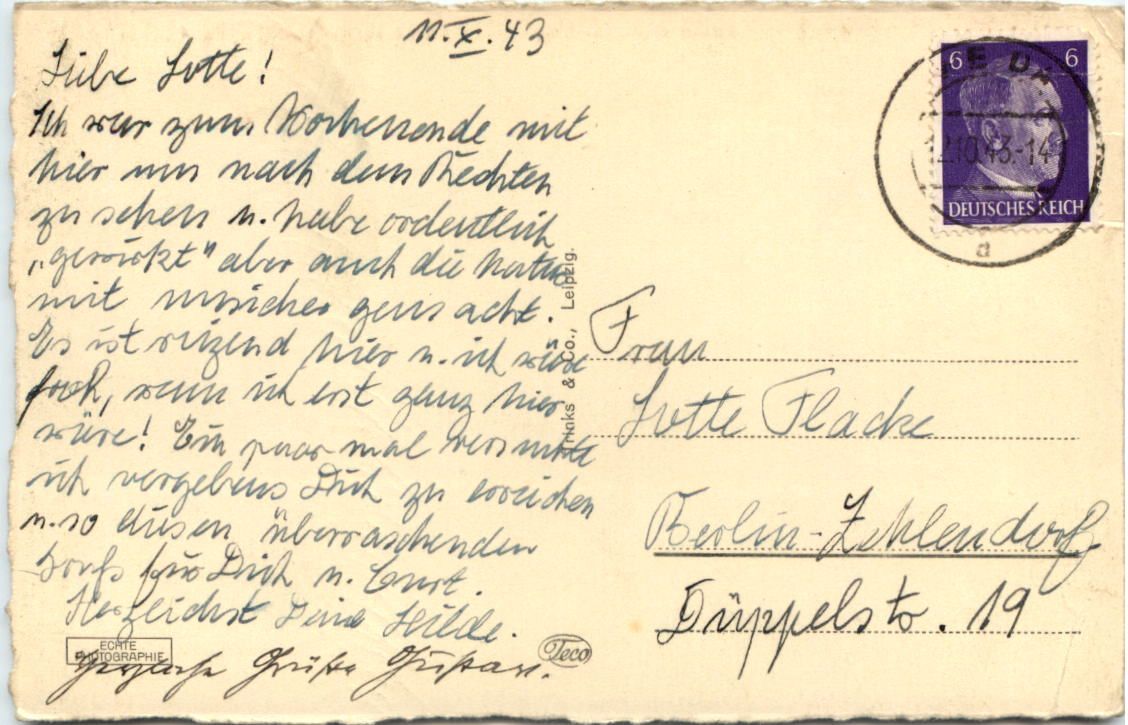 11.X.43
Liebe Lotte!
Ich war zum Wochenende mit
hier um nach dem Rechten
zu sehen u. habe ordentlich
„gewirkt" aber auch die Natur
mit
Es ist reizend hier u. ich wäre
froh, wenn ich erst ganz hier
wäre! Ein paar mal versuchte
ich vergebens Dich zu erreichen
u. so diesen überraschenden
Gruß für Dich u. Curt.
Herzlichst Deine Hilde.
Herzliche Grüße Gustav.
ECHTE
PHOTOGRAPHIE
Teco
Trinks & Co., Leipzig.
6 6
DEUTSCHES REICH
12.10.43.-14
a
Frau
Lotte Flacke
Berlin-Zehlendorf
Düppelstr. 19